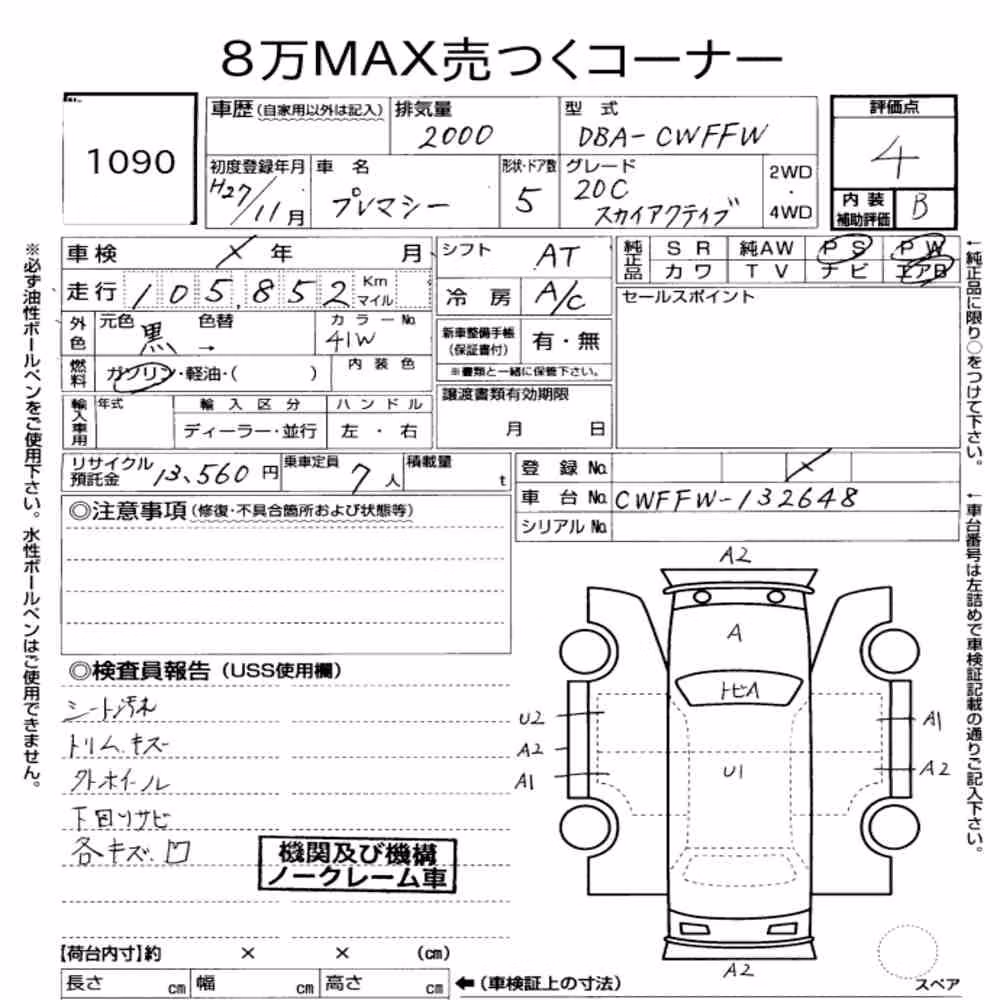 8万MAX売つくコーナー
1090
車歴(自家用以外は記入)
排気量
2000
型 式
DBA-CWFFW
評価点
4
初度登録年月
H27/11月
車 名
プレマシー
形状・ドア数
5
グレード
20C
スカイアクティブ
2WD
・
4WD
内装
補助評価
B
車検 × 年 月
走行 105,852 Km
マイル
シフト AT
冷房 A/C
純正品
SR 純AW PS PW
カワ TV ナビ エアB
セールスポイント
外色
元色 黒
色替 →
カラーNo.
41W
新車整備手帳
(保証書付)
有・無
※書類と一緒に保管下さい。
燃料
ガソリン・軽油・( )
内装色
譲渡書類有効期限
月 日
輸入車用
年式
輸入区分
ディーラー・並行
ハンドル
左・右
リサイクル
預託金 13,560 円
乗車定員
7人
積載量
t
登録No.
×
車台No.
CWFFW-132648
シリアルNo.
◎注意事項(修復・不具合箇所および状態等)
◎検査員報告(USS使用欄)
シート汚れ
トリム.キズ
外ホイール
下回りサビ
各キズ.凹
機関及び機構
ノークレーム車
A2
A
トビA
U2
A2
A1
U1
A1
A2
A2
スペア
【荷台内寸】約 × × (cm)
長さ cm
幅 cm
高さ cm
←(車検証上の寸法)
※必ず油性ボールペンをご使用下さい。水性ボールペンはご使用できません。
←純正品に限り○をつけて下さい。
←車台番号は左詰めで車検証記載の通りご記入下さい。